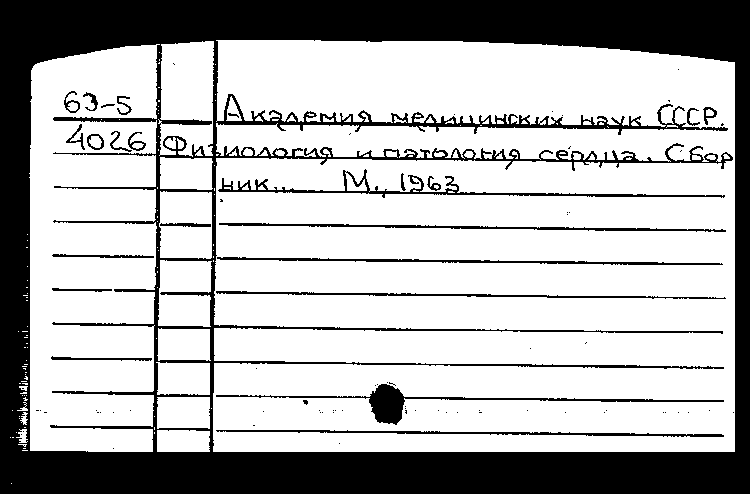 63-5 Академия медицинских наук СССР.
4026 Физиология и патология сердца. Сбор
ник... М., 1963